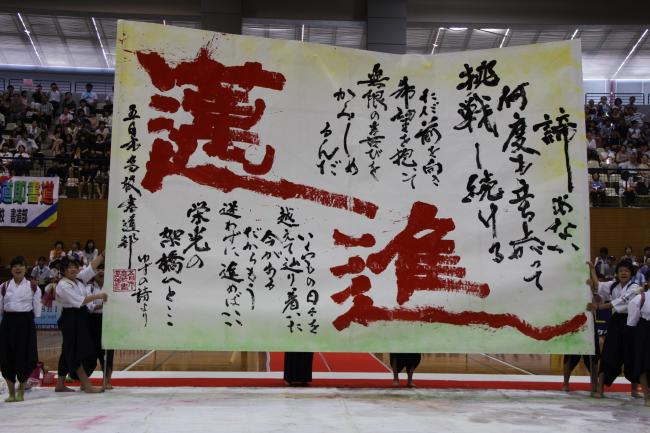 諦めない
何度も立ち上がって
挑戦し続ける
ただ前を向き
希望を抱いて
無限の喜びを
かみしめ
るんだ
邁進
いくつもの日々を
越えて辿り着いた
今がある
だからもう
迷わずに進めばいい
栄光の
架橋へと…
ゆずの詩より
五日市高校書道部
書道部